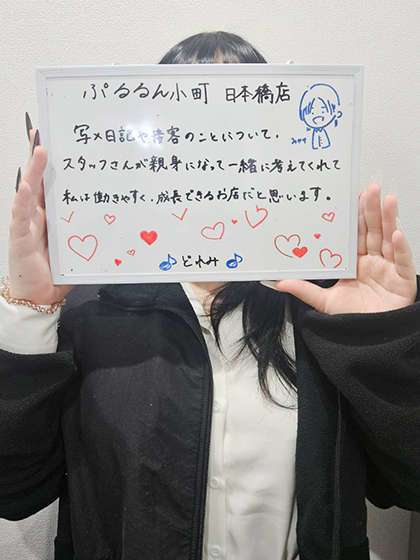 ぷるるん小町 日本橋店
写メ日記や接客のことについて、
スタッフさんが親身になって一緒に考えてくれて
私は働きやすく、成長できるお店だと思います。
どれみ